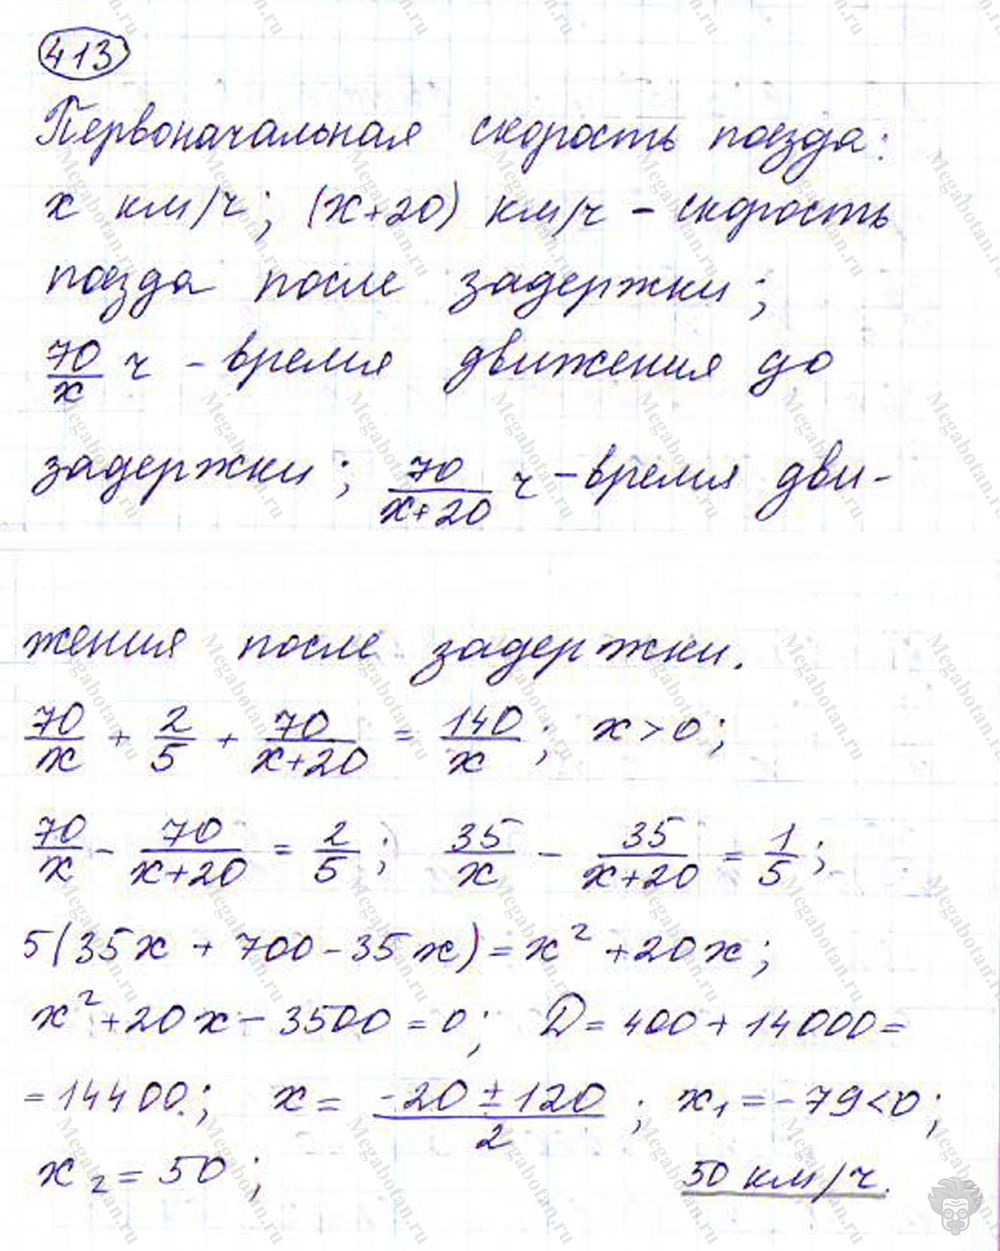 413
Первоначальная скорость поезда:
x км/ч; (x+20) км/ч - скорость
поезда после задержки;
70/x ч - время движения до
задержки; 70/(x+20) ч - время дви-
жения после задержки.
70/x + 2/5 + 70/(x+20) = 140/x; x>0;
70/x - 70/(x+20) = 2/5; 35/x - 35/(x+20) = 1/5;
5(35x + 700 - 35x) = x² + 20x;
x² + 20x - 3500 = 0; D = 400 + 14000 =
= 14400; x = (-20 ± 120)/2; x₁ = -79 < 0;
x₂ = 50; 50 км/ч.
Megabotan.ru